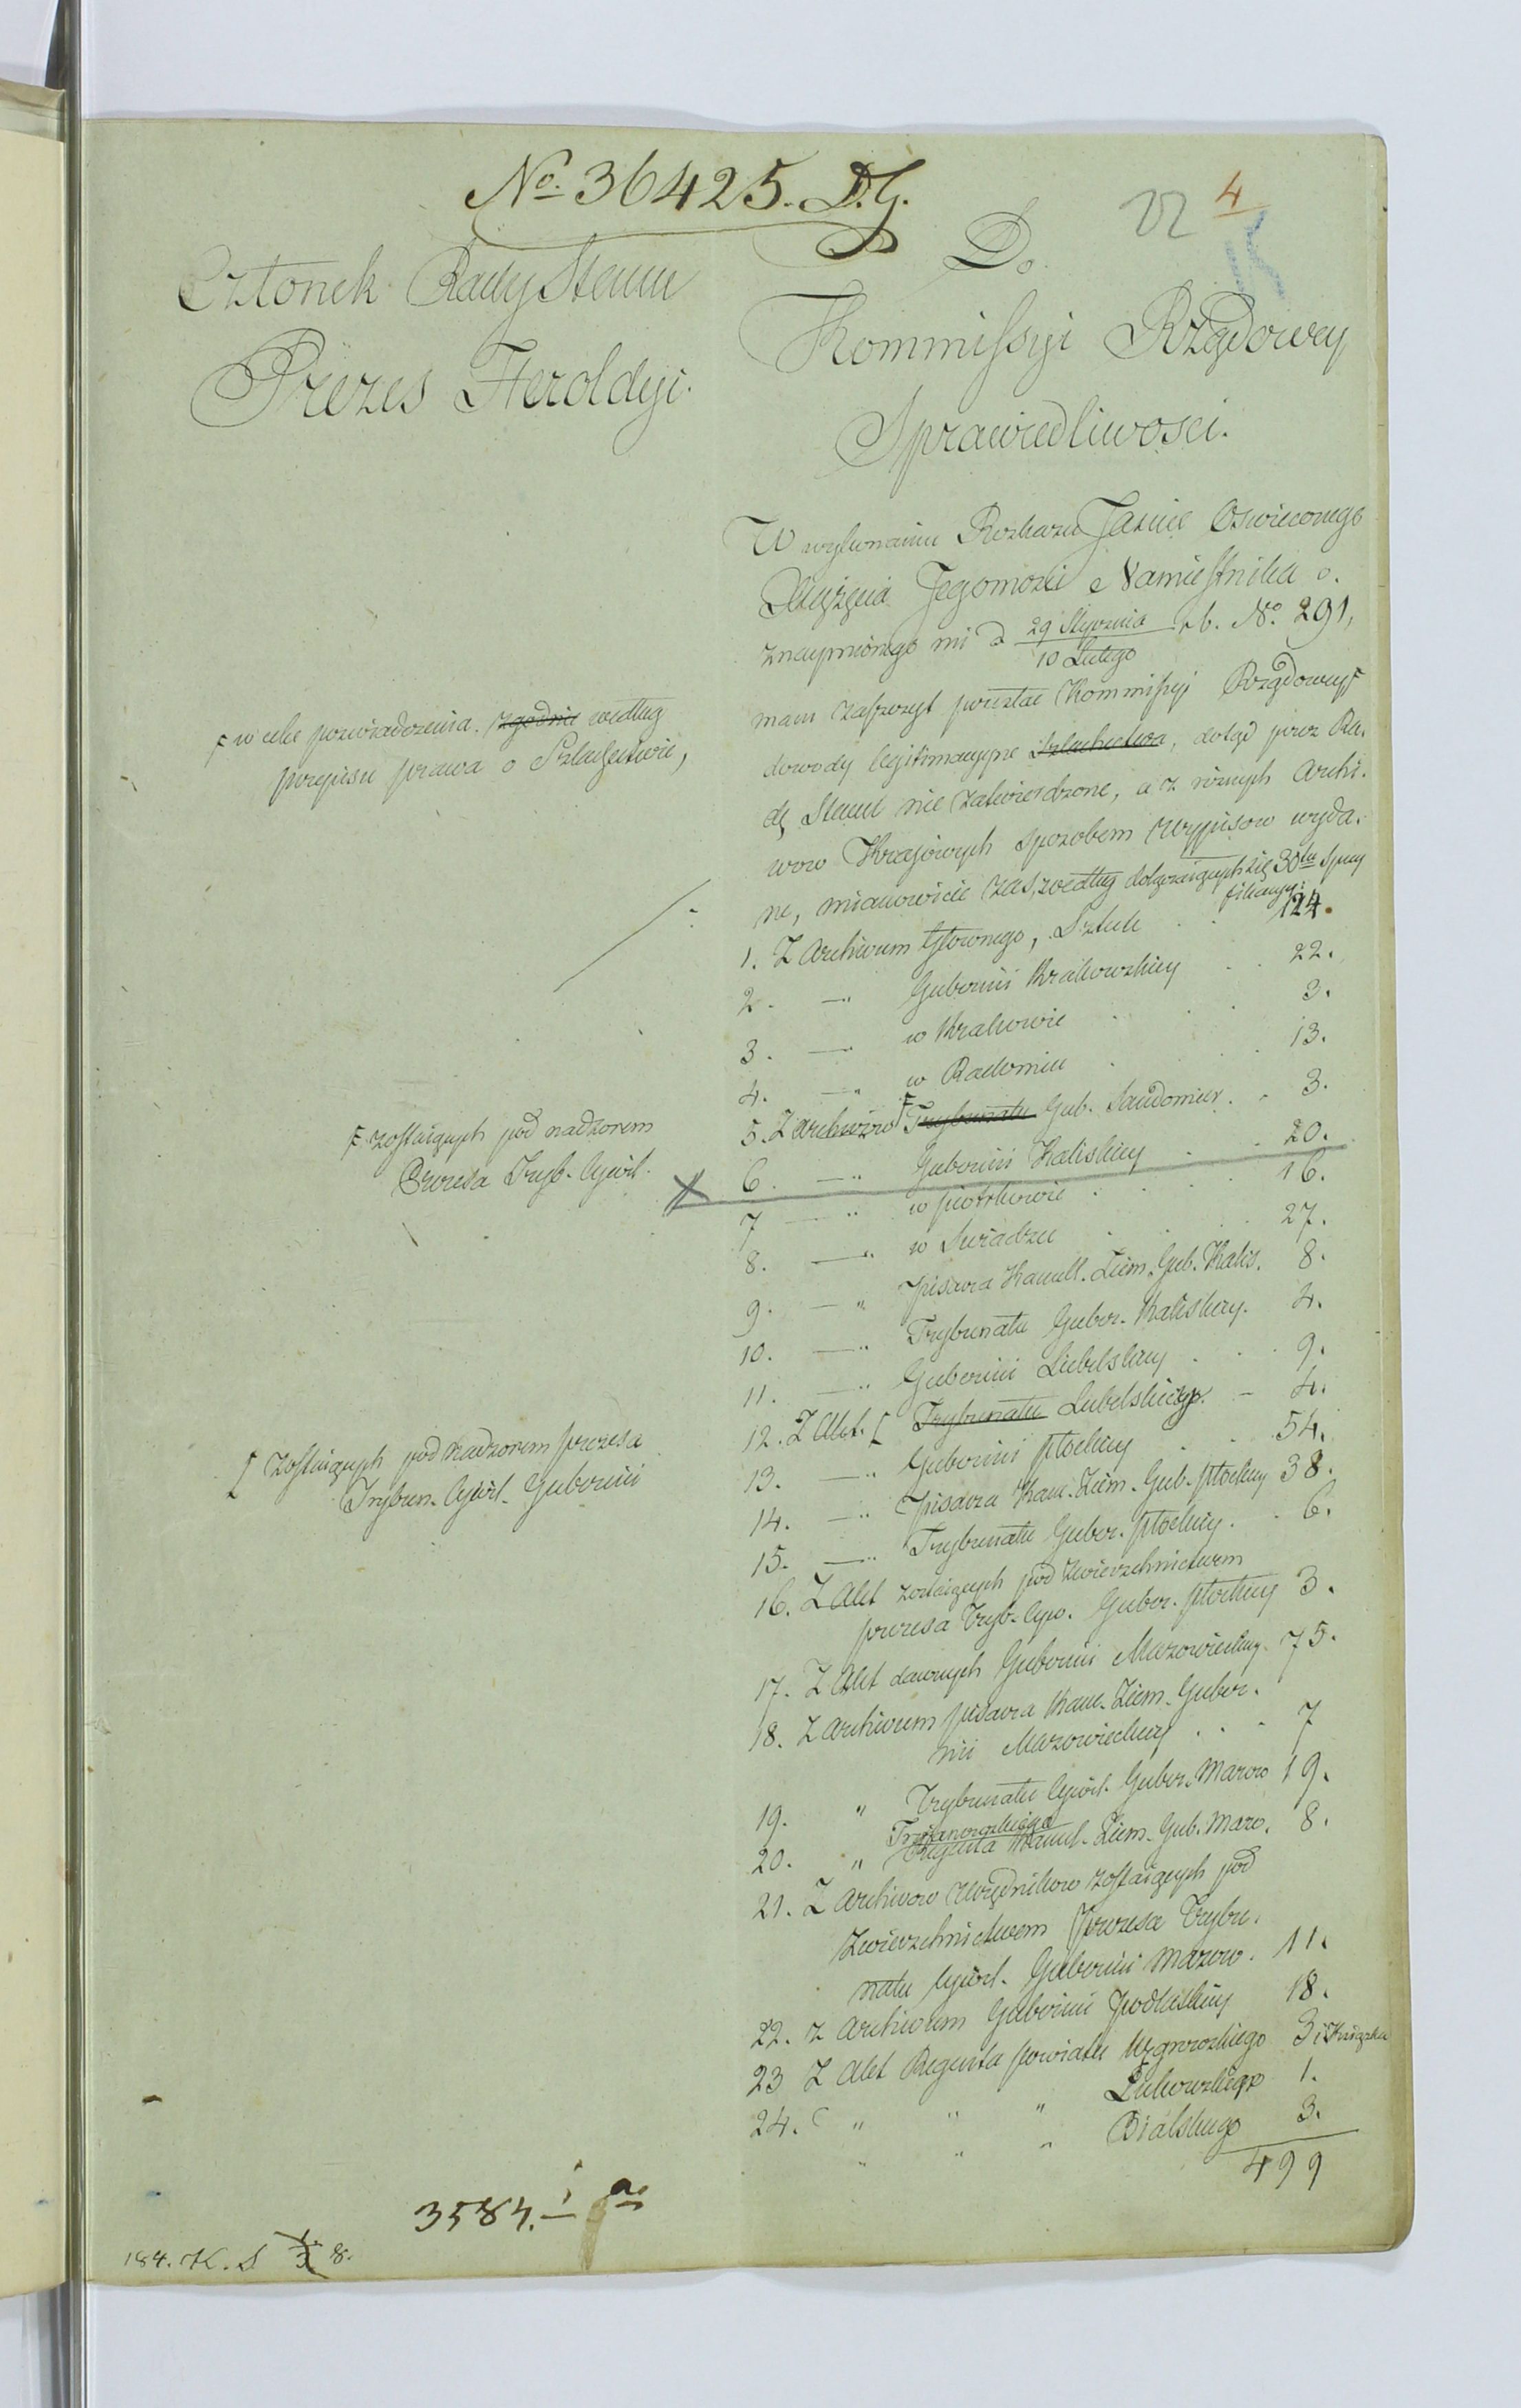 No. 36425. D.G.
4
Członek Rady Stanu
Prezes Heroldyi.
Do
Kommissyi Rządowey
Sprawiedliwosci.
W wykonaniu Rozkazu Jasnie Oswieconego
Xiążęcia Jegomosci Namiestnika o.
znaymionego mi d 29 Stycznia / 10 Lutego r.b. No. 291,
mam zaszczyt przesłac Kommissyi Rządowey F
dowody legitimacyjne Szlachectwa, dotąd przez Ra.
dę Stanu nie zatwierdzone, a z roznych Archi.
wow Krajowych sposobem wypisow wyda.
ne, mianowicie zas, według dołączaiących się 30tu Specy
fikacyi:
F w celu poswiadczenia zgodnie według
przepisu prawa o Szlachectwie,
1. Z Archivum Głownego, Sztuk . . 124.
2. —" Gubernii Krakowskiey . . 22.
3. —" w Krakowie . . . 3.
4. —" w Radomiu . . . 13.
5. Z Archiwow F Trybunału Gub. Sandomier. . 3.
F zostaiących pod nadzorem
Prezesa Tryb. Cywil.
6. —" Gubernii Kaliskiey . . 20.
7 —" w Piotrkowie . . . . 16.
8. —" w Sieradzu . . . 27.
9. —" Pisarza Kancell. Ziem. Gub. Kalis. 8.
10. —" Trybunału Guber. Kaliskiey. 4.
11. —" Gubernii Lubelskiey . . . 9.
12. Z Akt. [ Trybunału Lubelskiey. – 4.
[ zostaiących pod nadzorem prezesa
Trybun. Cywil. Gubernii
13. —" Gubernii Płockiey . . 54.
14. —" Pisarza Kan. Ziem. Gub. Płockiey 38.
15. —" Trybunału Guber. Płockiey. . 6.
16. Z Akt zostaiących pod Zwierzchnictwem
prezesa Tryb. Cyw. Guber. Płockiey 3.
17. Z Akt dawnych Gubernii Mazowieckiey. 75.
18. Z Archiwum pisarza Kanc. Ziem. Guber.
nii Mazowieckiey . . . 7
19. " Trybunału Cywil. Guber. Mazow 19.
20. " Regenta Kancel. Ziem. Gub. Mazo. 8.
21. Z Archiwow Urzędnikow zostaiących pod
Zwierzchnictwem Prezesa Trybu.
nału Cywil. Gubernii Mazow. 11.
22. Z Archiwum Gubernii Podlaskiey 18.
23 Z Akt Regenta powiatu Węgrowskiego 3 i Książka
24. " " " Łukowskiego 1.
" " " Bialskiego 3.
499
3584.
184. K. S 8.